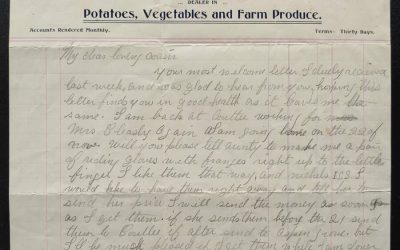 DEALER IN
Potatoes, Vegetables and Farm Produce.
Accounts Rendered Monthly. Terms- Thirty Days.
My dear loving cousin
your most welcome letter I duly received
last week, and was glad to hear from you, hoping this
letter find you in good health as it leaves me the
same. I am back at working for
Mrs again I am going on the 22 of
nove. Will you please tell aunty to make me a pair
of riding gloves with franges right up to the little
finger I like them that way, and I
would like to have them right away and tell to
send her price I will send the money as soon
as I get them. if she sends them before the 21 send
them to if after send to Aspen grove. but
I'll be much pleased if I get them